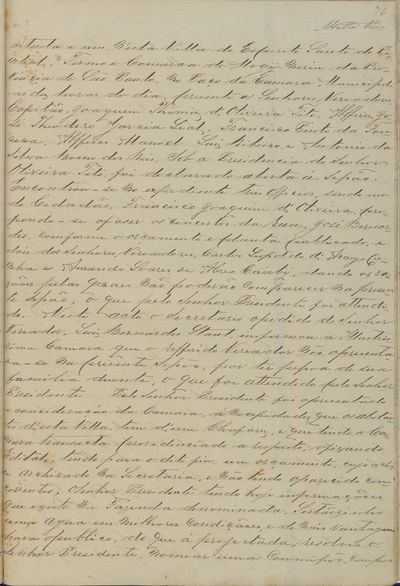 76
Motta Paes
oitenta e um Nesta Villa do Espirito Santo do Pi-
nhal, Termo e Comarca de Mogy Mirim da Pro-
vincia de São Paulo, No Paço da Camara Municipal
as dez horas do dia, presente os Senhores Vereadores
Capitão, Joaquim Thomaz d'Oliveira Tito, Alferes, Jo-
sé Theodoro Garcia Leal, Francisco Pinto da Fon-
seca, Alferes Manoel Luiz Ribeiro e Antonio da
Silva Bueno dos Reis, Sob a Presidencia do Senhor
Oliveira Tito foi declarada aberta a Sessão.
Encontrou-se No expediente tres officios, sendo um
do Cidadão, Francisco Joaquim d'Oliveira, pro-
pondo-se afazer os concertos da José Bernar-
des, conforme o orçamento e planta publicado, e
dois dos Senhores Vereadores, Carlos Leopoldo d'Araujo Cu-
nha e Amando Soares de Caiuby, dando as ra-
zões pelas quaes Não poderão Comparecer Na presen-
te Sessão, o que pelo Senhor Presidente foi attendi-
do. Neste acto o Secretario apedido do Senhor
Vereador, Luiz Bernardo Staut, informou a Illustris-
sima Camara que o refferido Vereador Não apresenta-
va-se Na presente Sessão, por ter pessoa de sua
familia doente, o que foi attendido pelo Senhor
Presidente. Pelo Senhor Presidente foi apresentado
a concideração da Camara, a Necessidade, que os habitan-
te desta Villa tem d'um Chafariz, e que tendo a Ca-
mara transacta providenciado a respeito, afixando
Editaes, tendo para o dito fim um orçamento, cujo acha-
se Archivado Na Secretaria, e Não tendo aparecido con-
correntes, o Senhor Presidente tendo hoje informações
que existe Na Fazenda denominada, Sertãosinho
uma Agua em Milhores Condicções, e de Mais Vantagem
para opublico, do que a projectada, resolveo o
Senhor Presidente, Nomear uma Commissão, compos-